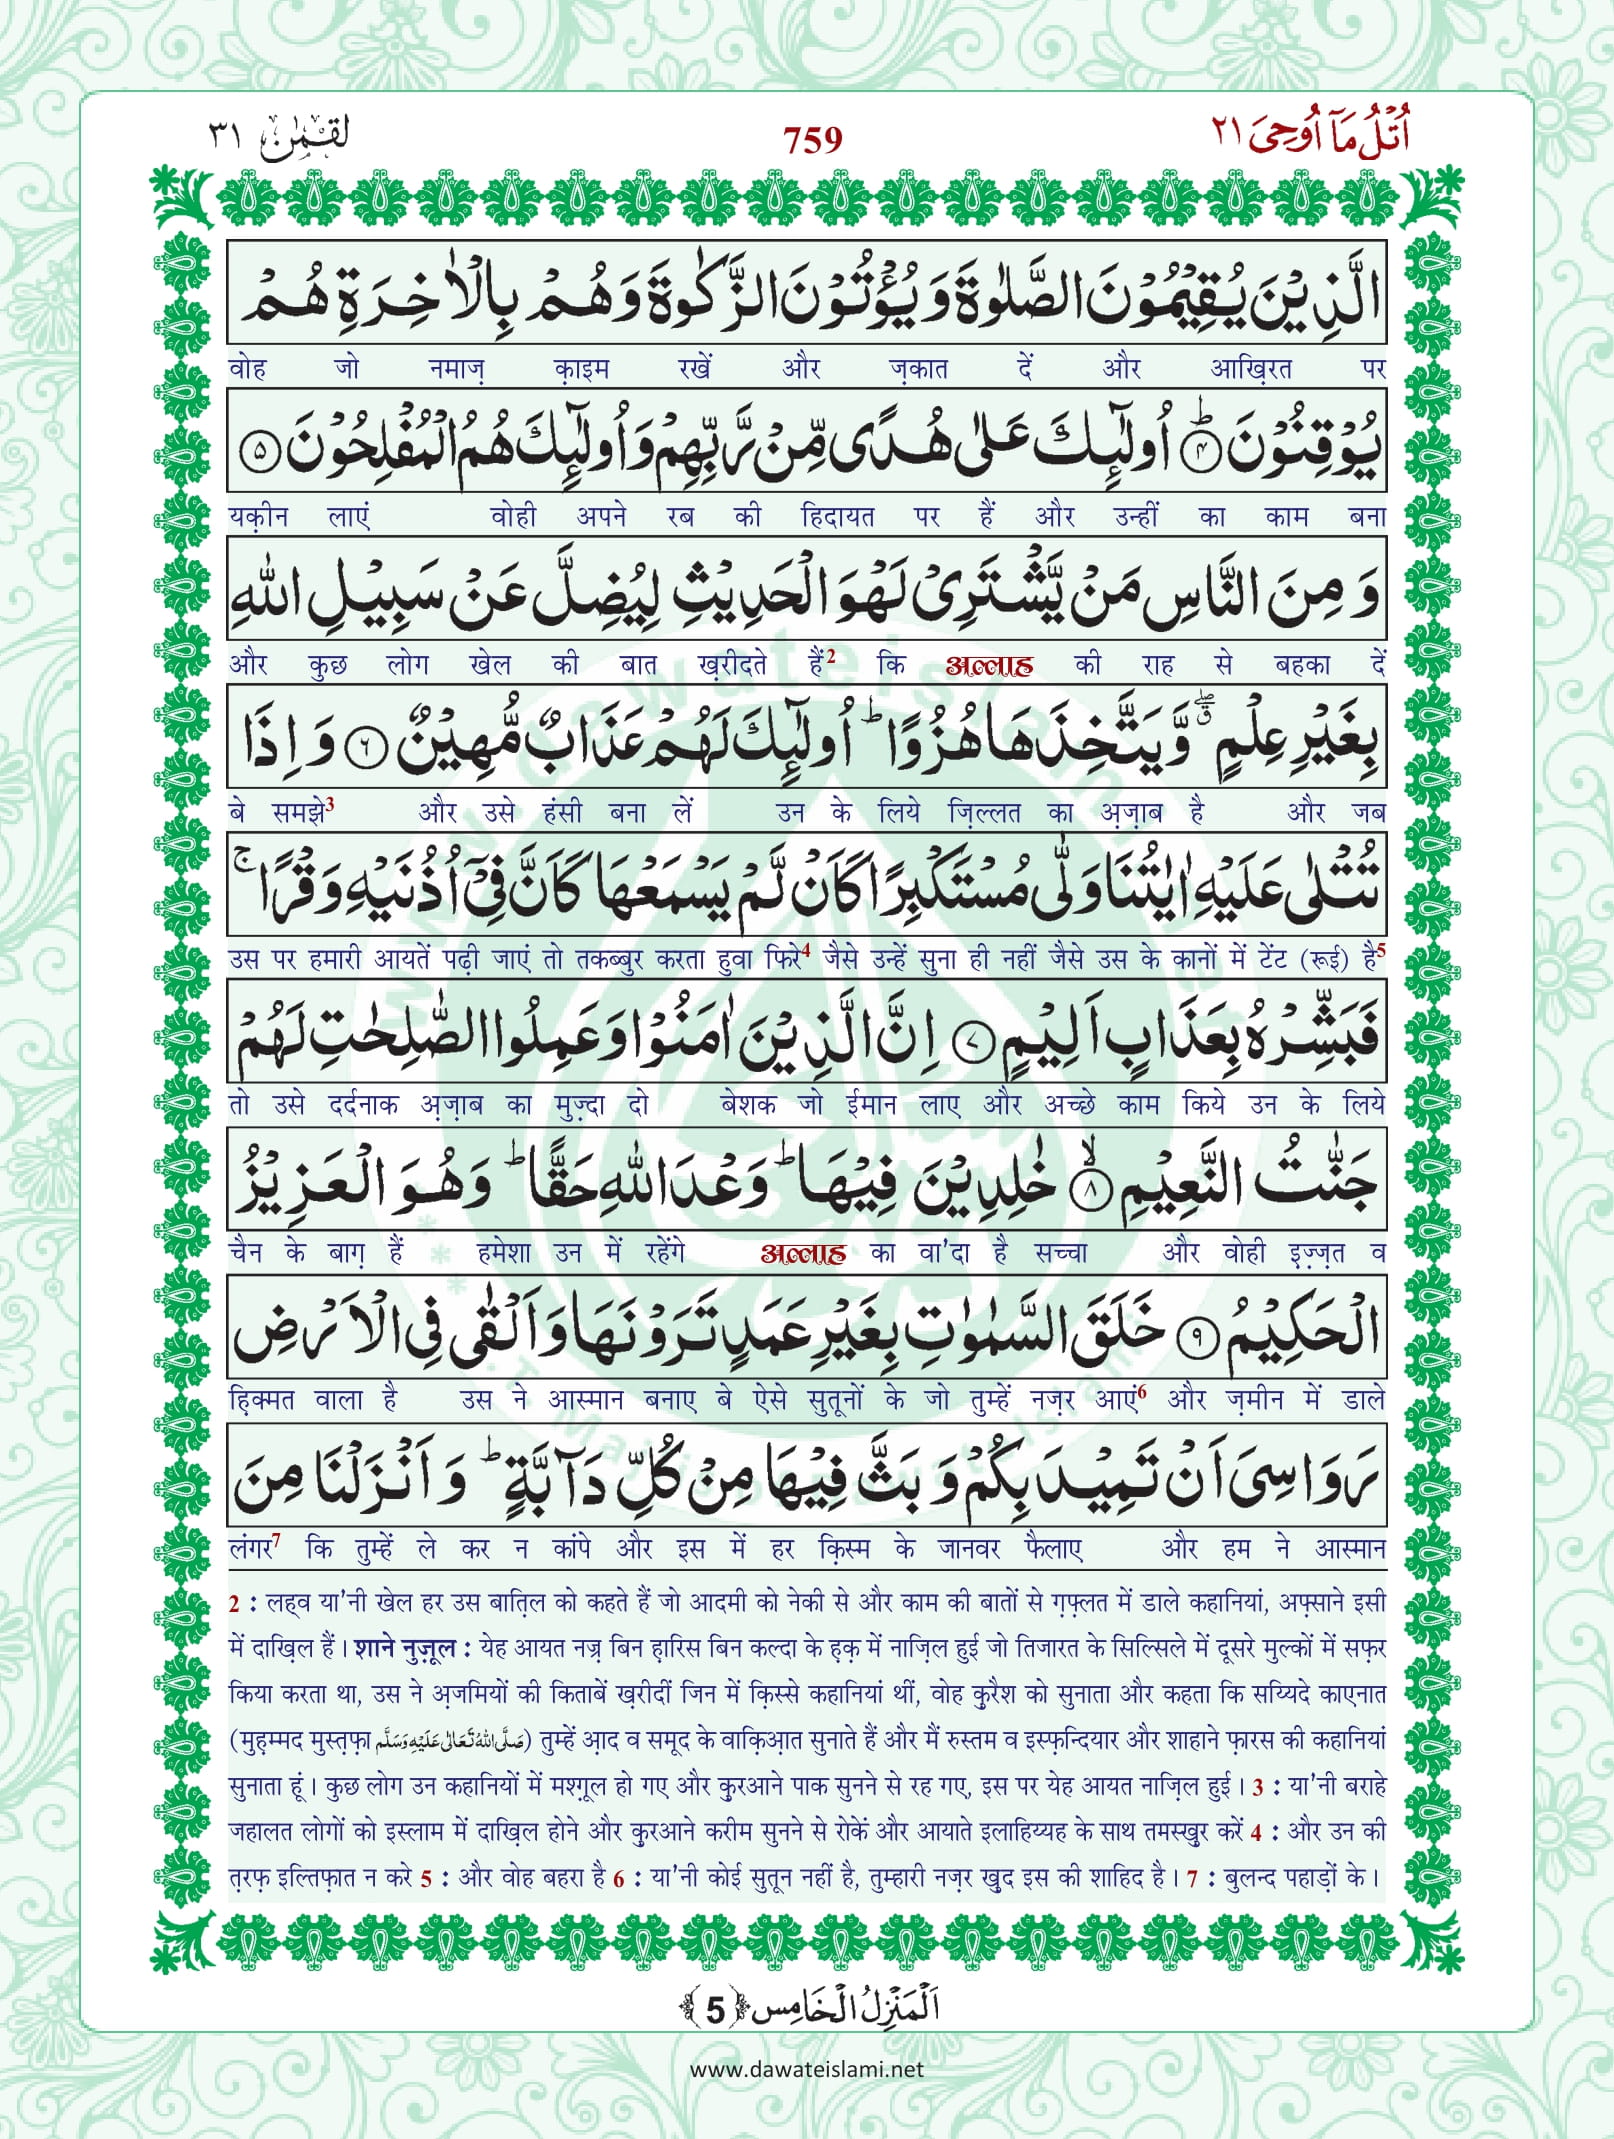 اُتْلُ مَاۤ اُوْحِیَ ٢١
759
لُقْمٰن ٣١
الَّذِیْنَ یُقِیْمُوْنَ الصَّلٰوةَ وَ یُؤْتُوْنَ الزَّكٰوةَ وَ هُمْ بِالْاٰخِرَةِ هُمْ
वोह जो नमाज़ क़ाइम रखें और ज़कात दें और आख़िरत पर
یُوْقِنُوْنَؕ(۴) اُولٰٓىٕكَ عَلٰى هُدًى مِّنْ رَّبِّهِمْ وَ اُولٰٓىٕكَ هُمُ الْمُفْلِحُوْنَ(۵)
यक़ीन लाएं वोही अपने रब की हिदायत पर हैं और उन्हीं का काम बना
وَ مِنَ النَّاسِ مَنْ یَّشْتَرِیْ لَهْوَ الْحَدِیْثِ لِیُضِلَّ عَنْ سَبِیْلِ اللّٰهِ
और कुछ लोग खेल की बात ख़रीदते हैं2 कि अल्लाह की राह से बहका दें
بِغَیْرِ عِلْمٍ ﳓ وَّ یَتَّخِذَهَا هُزُوًاؕ اُولٰٓىٕكَ لَهُمْ عَذَابٌ مُّهِیْنٌ(۶) وَ اِذَا
बे समझे3 और उसे हंसी बना लें उन के लिये ज़िल्लत का अ़ज़ाब है और जब
تُتْلٰى عَلَیْهِ اٰیٰتُنَا وَلّٰى مُسْتَكْبِرًا كَاَنْ لَّمْ یَسْمَعْهَا كَاَنَّ فِیْۤ اُذُنَیْهِ وَقْرًاۚ
उस पर हमारी आयतें पढ़ी जाएं तो तकब्बुर करता हुवा फिरे4 जैसे उन्हें सुना ही नहीं जैसे उस के कानों में टेंट (रूई) है5
فَبَشِّرْهُ بِعَذَابٍ اَلِیْمٍ(۷) اِنَّ الَّذِیْنَ اٰمَنُوْا وَ عَمِلُوا الصّٰلِحٰتِ لَهُمْ
तो उसे दर्दनाक अ़ज़ाब का मुज़्दा दो बेशक जो ईमान लाए और अच्छे काम किये उन के लिये
جَنّٰتُ النَّعِیْمِۙ(۸) خٰلِدِیْنَ فِیْهَاؕ وَعْدَ اللّٰهِ حَقًّاؕ وَ هُوَ الْعَزِیْزُ
चैन के बाग़ हैं हमेशा उन में रहेंगे अल्लाह का वा'दा है सच्चा और वोही इ़ज़्ज़त व
الْحَكِیْمُ(۹) خَلَقَ السَّمٰوٰتِ بِغَیْرِ عَمَدٍ تَرَوْنَهَا وَ اَلْقٰى فِی الْاَرْضِ
हि़क्मत वाला है उस ने आस्मान बनाए बे ऐसे सुतूनों के जो तुम्हें नज़र आएं6 और ज़मीन में डाले
رَوَاسِیَ اَنْ تَمِیْدَ بِكُمْ وَ بَثَّ فِیْهَا مِنْ كُلِّ دَآبَّةٍؕ وَ اَنْزَلْنَا مِنَ
लंगर7 कि तुम्हें ले कर न कांपे और इस में हर क़िस्म के जानवर फैलाए और हम ने आस्मान
2 : लह्व या'नी खेल हर उस बात़िल को कहते हैं जो आदमी को नेकी से और काम की बातों से ग़फ़्लत में डाले कहानियां, अफ़्साने इसी
में दाख़िल हैं। शाने नुज़ूल : येह आयत नज़्र बिन ह़ारिस बिन कल्दा के ह़क़ में नाज़िल हुई जो तिजारत के सिल्सिले में दूसरे मुल्कों में सफ़र
किया करता था, उस ने अ़जमियों की किताबें ख़रीदीं जिन में क़िस्से कहानियां थीं, वोह क़ुरैश को सुनाता और कहता कि सय्यिदे काएनात
(मुह़म्मद मुस्त़फ़ा صَلَّی اللّٰهُ تَعَالٰی عَلَیْهِ وَسَلَّم) तुम्हें आ़द व समूद के वाक़िआ़त सुनाते हैं और मैं रुस्तम व इस्फ़न्दियार और शाहाने फ़ारस की कहानियां
सुनाता हूं। कुछ लोग उन कहानियों में मश्ग़ूल हो गए और क़ुरआने पाक सुनने से रह गए, इस पर येह आयत नाज़िल हुई। 3 : या'नी बराहे
जहालत लोगों को इस्लाम में दाख़िल होने और क़ुरआने करीम सुनने से रोकें और आयाते इलाहिय्यह के साथ तमस्ख़ुर करें 4 : और उन की
त़रफ़ इल्तिफ़ात न करे 5 : और वोह बहरा है 6 : या'नी कोई सुतून नहीं है, तुम्हारी नज़र ख़ुद इस की शाहिद है। 7 : बुलन्द पहाड़ों के।
اَلْمَنْزِلُ الْخَامِس ﴿5﴾
www.dawateislami.net